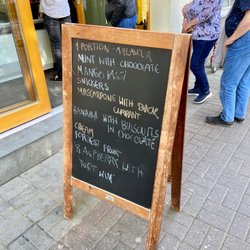 1 PORTION 1 FLAVOUR
MINT WITH CHOCOLATE
MANGO
SNICKERS
MASCARPONE WITH
CURRANT
BANANA WITH BISCUITS
IN CHOCOLATE
FOREST FRUIT
RASPBERRY WITH